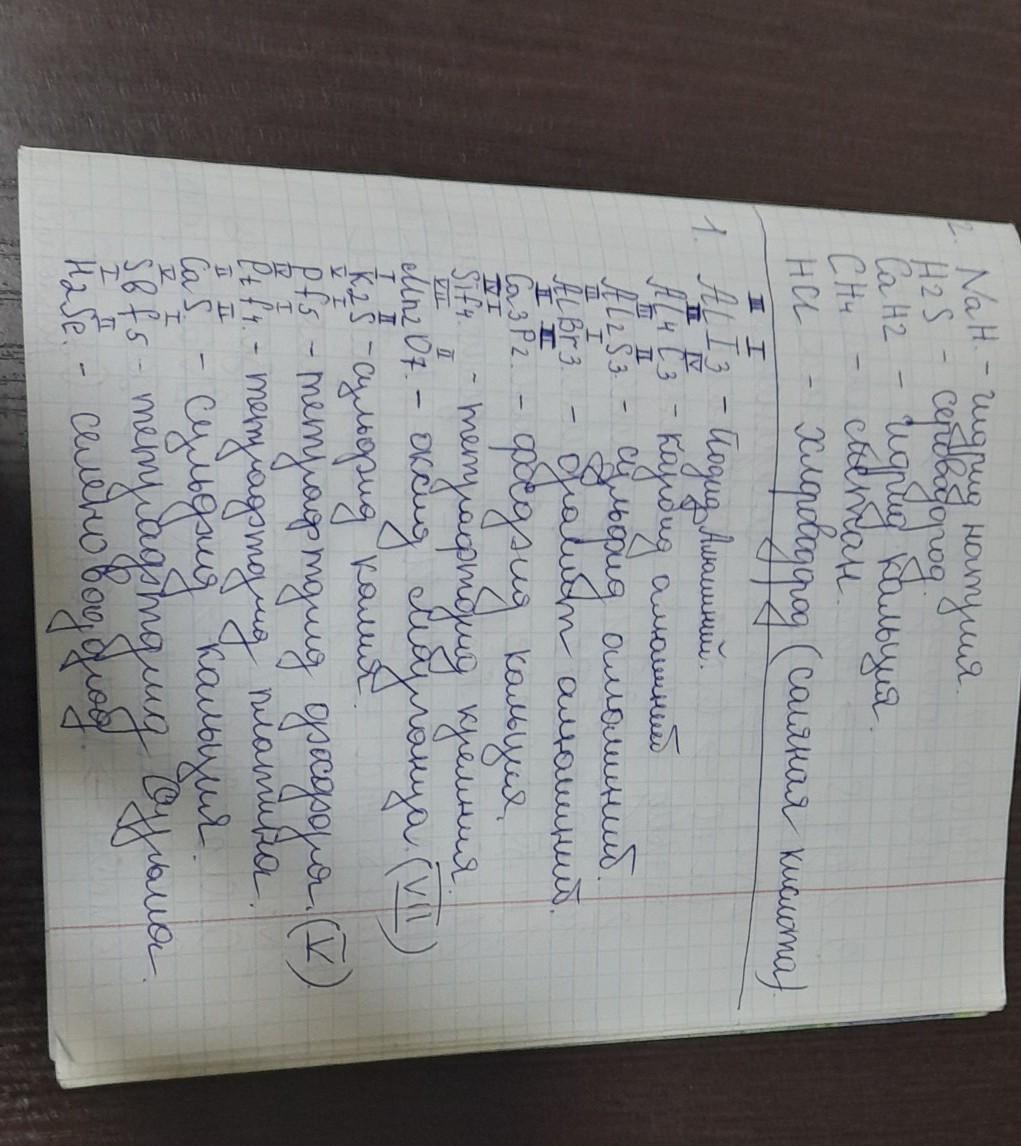 2. NaH. - гидрид натрия.
H2S - сероводород.
CaH2 - гидрид кальция.
CH4 - метан.
HCl - хлороводород (соляная кислота).
III I
1. AlI3 - Йодид Алюминий.
III IV
Al4C3 - Карбид алюминий
III II
Al2S3. - сульфид алюминий.
III I
AlBr3. - бромит алюминий.
II III
Ca3P2. - фосфид кальция.
IV I
Sif4. - тетрафторид кремния.
VII II
Mn2O7. - оксид Марганца. (VII)
I II
K2S - сульфид калия.
V I
Pf5 - тетрафторид фосфора. (V)
IV I
Ptf4. - тетрафторид платина.
II II
CaS. - сульфид кальция.
V I
Sbf5 - тетрафторид Сурьма.
I II
H2Se. - селеноводород.